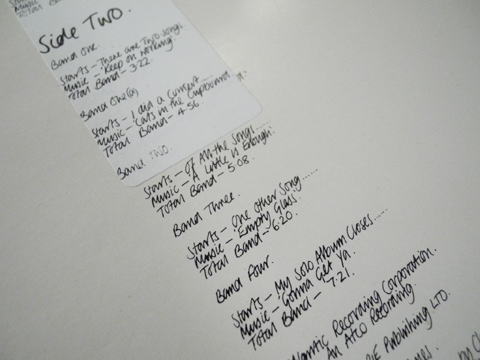 Music
Total Band
Side Two.
Band One.
Starts - There are Two songs.
Music - Keep on Working.
Total Band - 3.22.
Band One(a)
Starts - I am a Current....
Music - Cats in the Cupboard.
Total Band - 4.56.
Band Two.
Starts - Of All the Songs...
Music - A Little is Enough.
Total Band - 5.08.
Band Three.
Starts - One other Song......
Music - Empty Glass.
Total Band - 6.20.
Band Four.
Starts - My Solo Album Closes.....
Music - Gonna Get Ya.
Total Band - 7.21.
Atlantic Recording Corporation.
An ATCO Recording.
Publishing LTD.